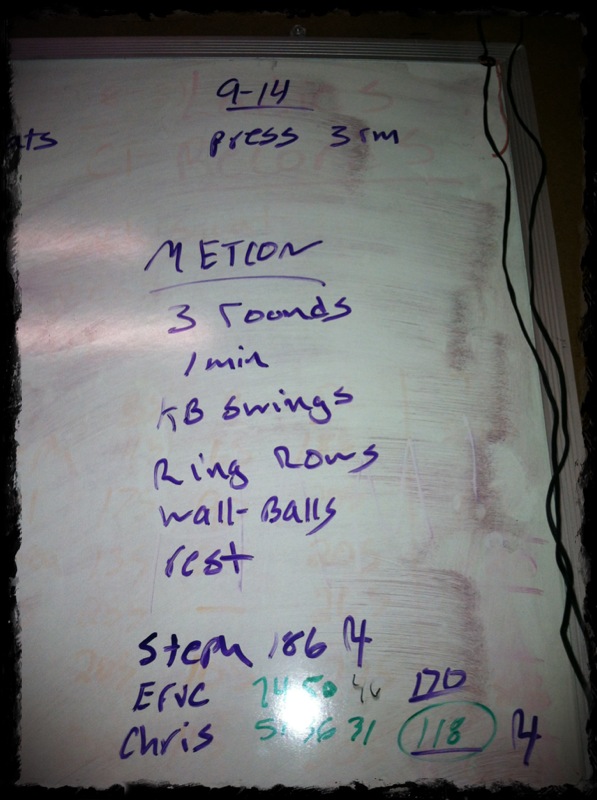 9-14
press 3 rm
METCON
3 rounds
1 min
KB Swings
Ring Rows
Wall-Balls
rest
Steph 186 R
Eric 74 50 46 170
Chris 51 36 31 118 R